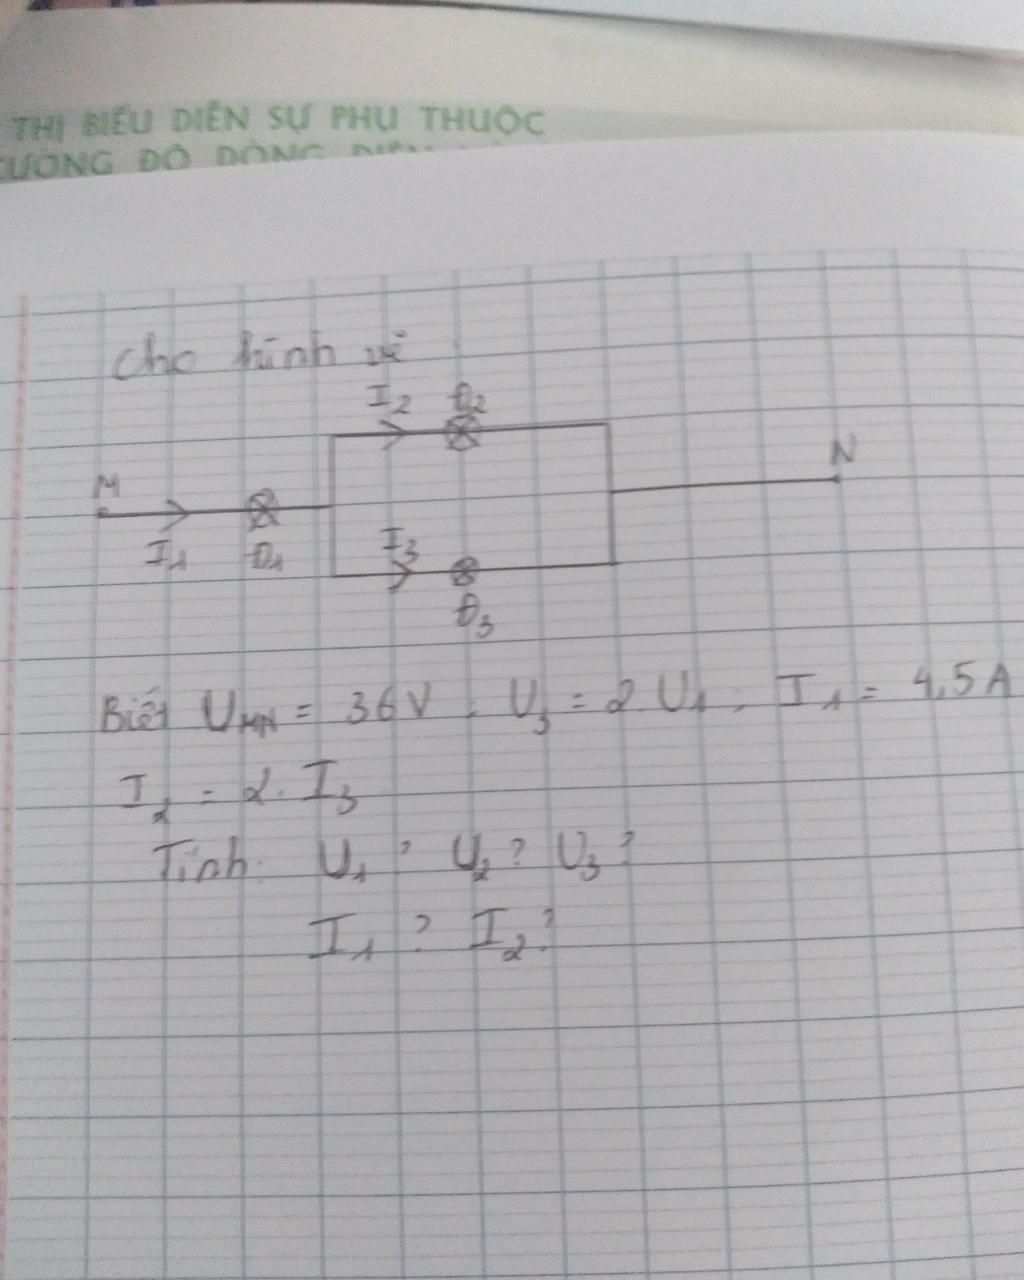 THỊ BIỂU DIỄN SỰ PHỤ THUỘC
ƯỜNG ĐỘ DÒNG ĐIỆN
Cho hình vẽ
I2 Đ2
M N
I1 Đ1 I3
Đ3
Biết UMN = 36V . U3 = 2.U1 . I1 = 4,5A
I2 = 2. I3
Tính. U1 ? U2 ? U3 ?
I1 ? I2 ?